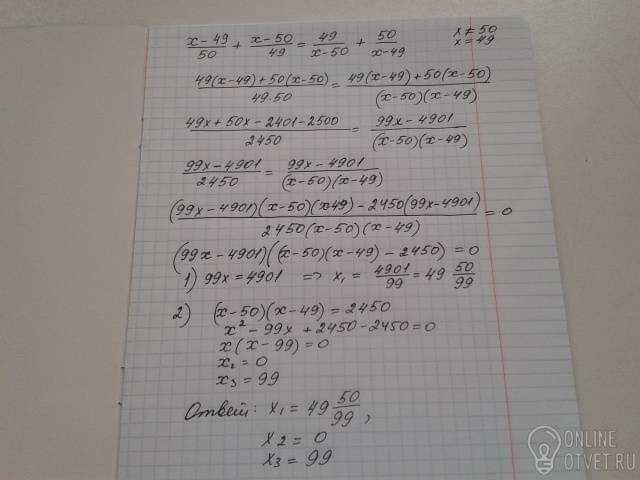 (x-49)/50 + (x-50)/49 = 49/(x-50) + 50/(x-49)   x≠50
x=49
(49(x-49)+50(x-50))/(49·50) = (49(x-49)+50(x-50))/((x-50)(x-49))
(49x+50x-2401-2500)/2450 = (99x-4901)/((x-50)(x-49))
(99x-4901)/2450 = (99x-4901)/((x-50)(x-49))
((99x-4901)(x-50)(x49)-2450(99x-4901))/(2450(x-50)(x-49)) = 0
(99x-4901)((x-50)(x-49)-2450)=0
1) 99x=4901 => x₁ = 4901/99 = 49 50/99
2) (x-50)(x-49)=2450
x²-99x+2450-2450=0
x(x-99)=0
x₂=0
x₃=99
Ответ: x₁=49 50/99,
x2=0
x3=99
ONLINE
OTVET.RU